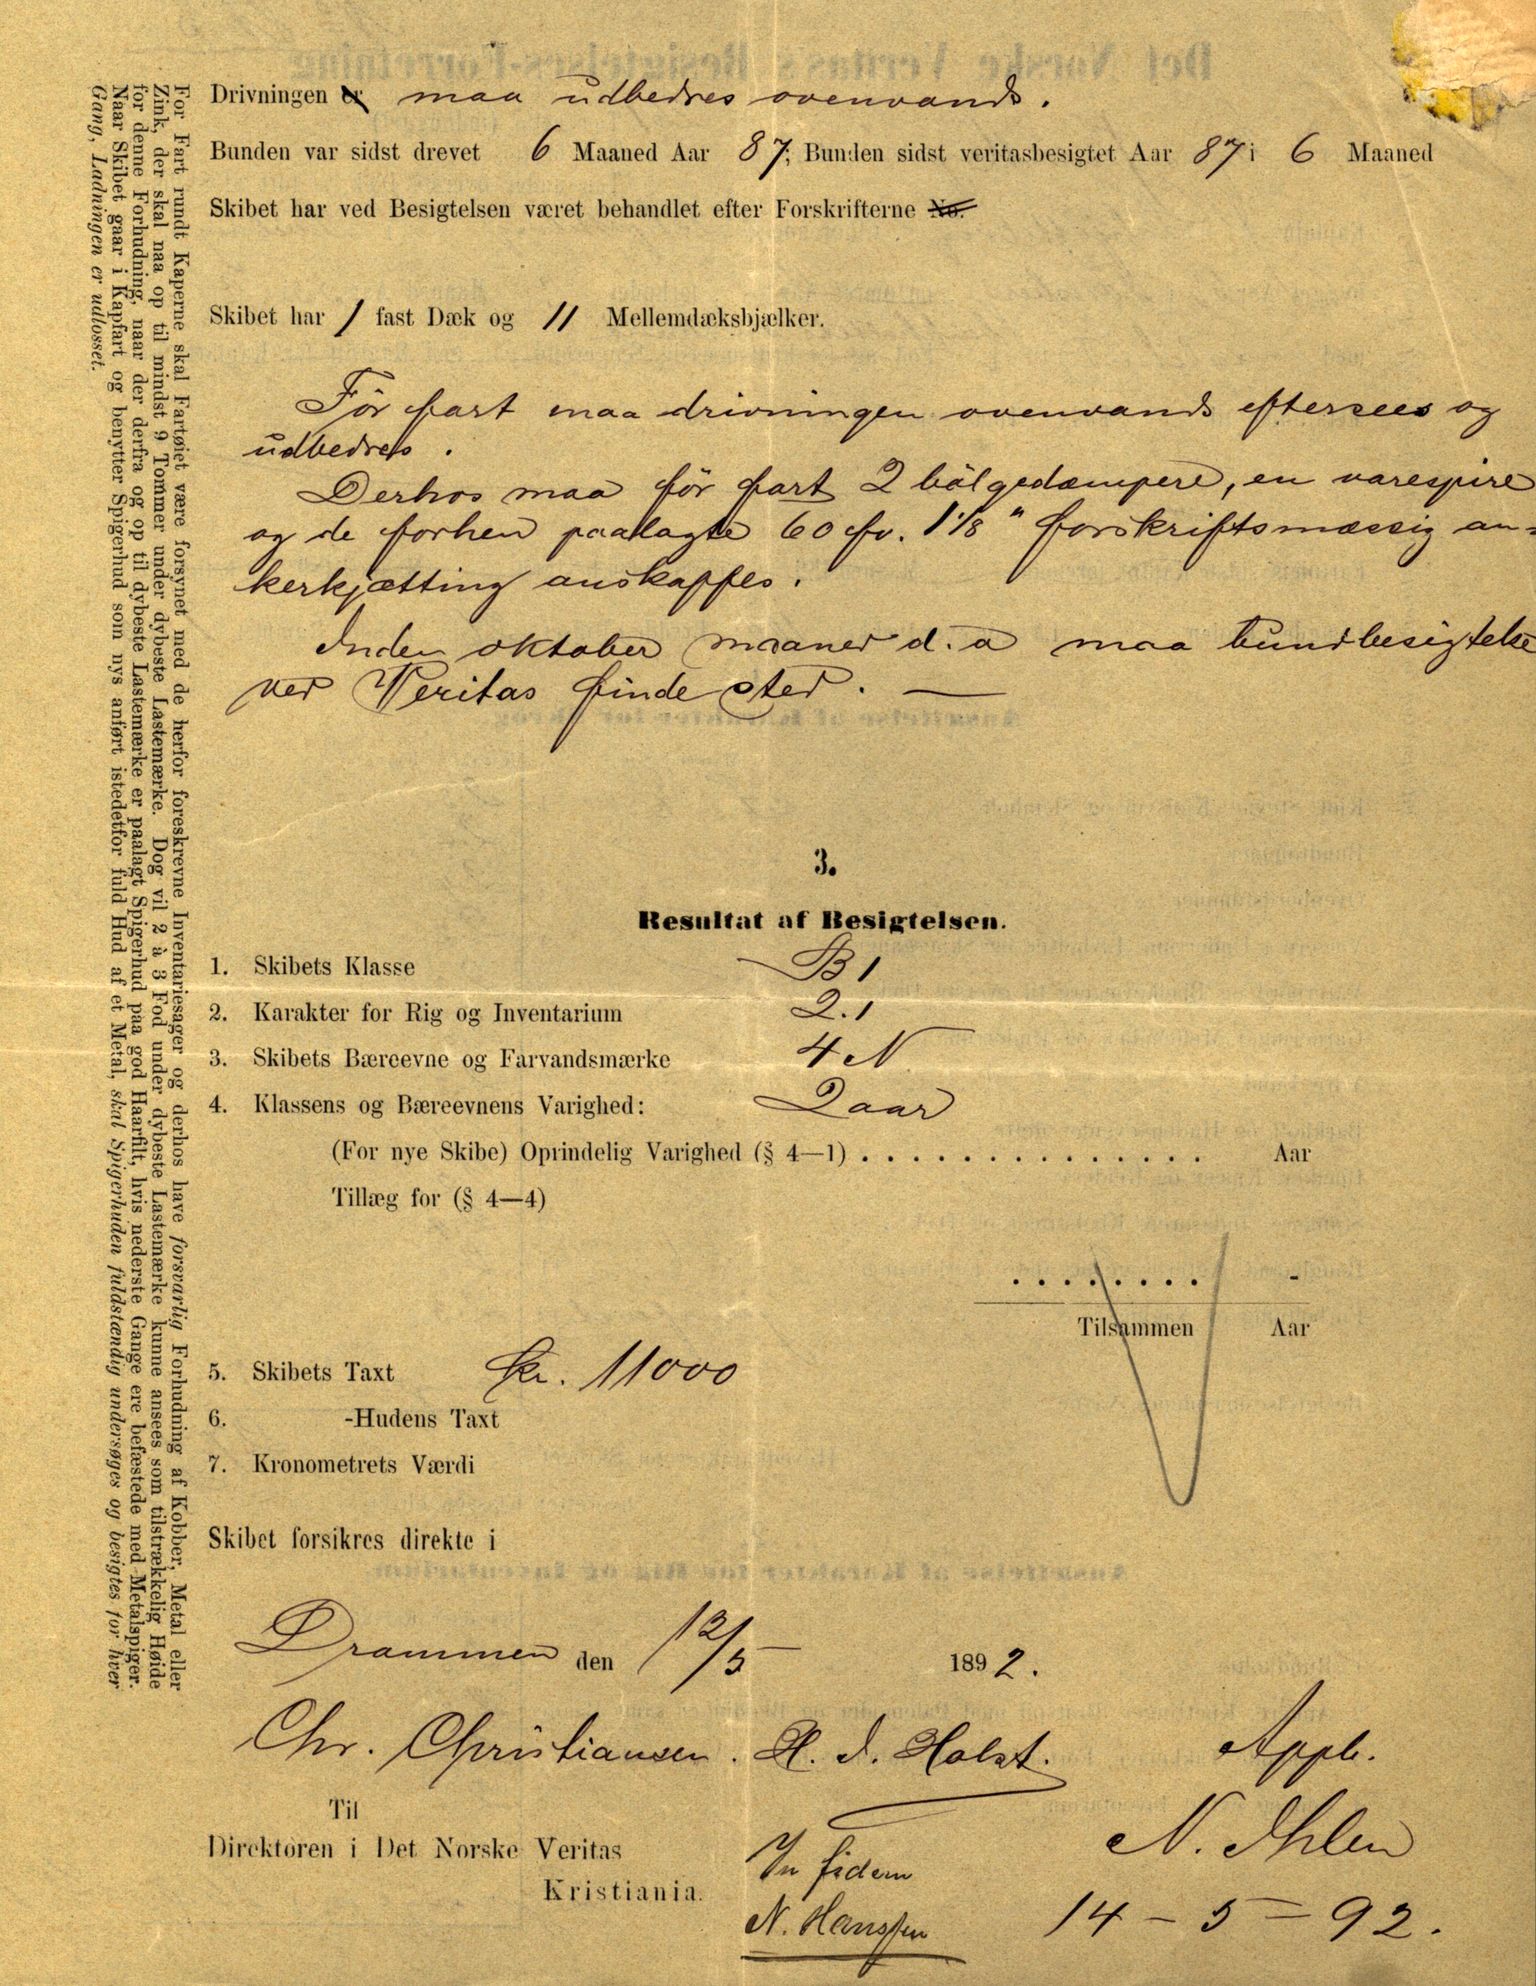 Drivningen er maa udbedres ovenvands.
Bunden var sidst drevet 6 Maaned Aar 87; Bunden sidst veritasbesigtet Aar 87 i 6 Maaned
Skibet har ved Besigtelsen været behandlet efter Forskrifterne No.
Skibet har 1 fast Dæk og 11 Mellemdæksbjælker.
Før fart maa drivningen ovenvands eftersees og
udbedres.
Derhos maa før fart 2 bølgedæmpere, en varespire
og de forhen paalagte 60 fv. 1 1/8" forskriftsmæssig an=
kerkjætting anskaffes.
Inden oktober maaned d. a maa bundbesigtelse
ved Veritas finde sted. —
3.
Resultat af Besigtelsen.
1. Skibets Klasse B 1
2. Karakter for Rig og Inventarium 2.1
3. Skibets Bæreevne og Farvandsmærke 4 N
4. Klassens og Bæreevnens Varighed: 2 aar
(For nye Skibe) Oprindelig Varighed (§ 4—1) . . . . . . . . . . . . . . Aar
Tillæg for (§ 4—4)
. . . . . . . . -
Tilsammen Aar
5. Skibets Taxt Kr. 11000
6. -Hudens Taxt
7. Kronometrets Værdi
Skibet forsikres direkte i
Drammen den 12/5 1892.
Chr. Christiansen. H. J. Holst.
Appb.
N. Ihlen
14 - 5 = 92.
Til
Direktøren i Det Norske Veritas
Kristiania.
In fidem
N. Hanssen
For Fart rundt Kaperne skal Fartøiet være forsynet med de herfor foreskrevne Inventariesager og derhos have forsvarlig Forhudning af Kobber, Metal eller
Zink, der skal naa op til mindst 9 Tommer under dybeste Lastemærke. Dog vil 2 à 3 Fod under dybeste Lastemærke kunne ansees som tilstrækkelig Høide
for denne Forhudning, naar der derfra og op til dybeste Lastemærke er paalagt Spigerhud paa god Haarfilt, hvis nederste Gange ere befæstede med Metalspiger.
Naar Skibet gaar i Kapfart og benytter Spigerhud som nys anført istedetfor fuld Hud af et Metal, skal Spigerhuden fuldstændig undersøges og besigtes for hver
Gang, Ladningen er udlosset.